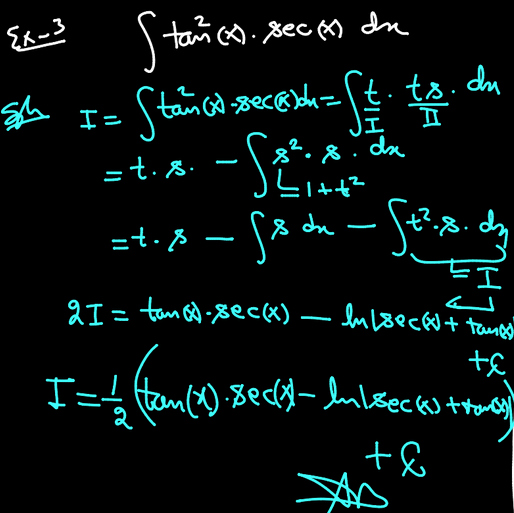 Ex-3 ∫ tan²(x). sec(x) dx
Soln I = ∫ tan²(x)-sec(x)dx = ∫ t . ts . dx
I II
= t. s. - ∫ s². s. dx
= 1+t²
= t. s - ∫ s dx - ∫ t². s. dx
= I
2I = tan(x).sec(x) - ln|sec(x) + tan(x)|
+ C
I = 1/2 (tan(x).sec(x) - ln|sec(x) + tan(x)|)
+ C